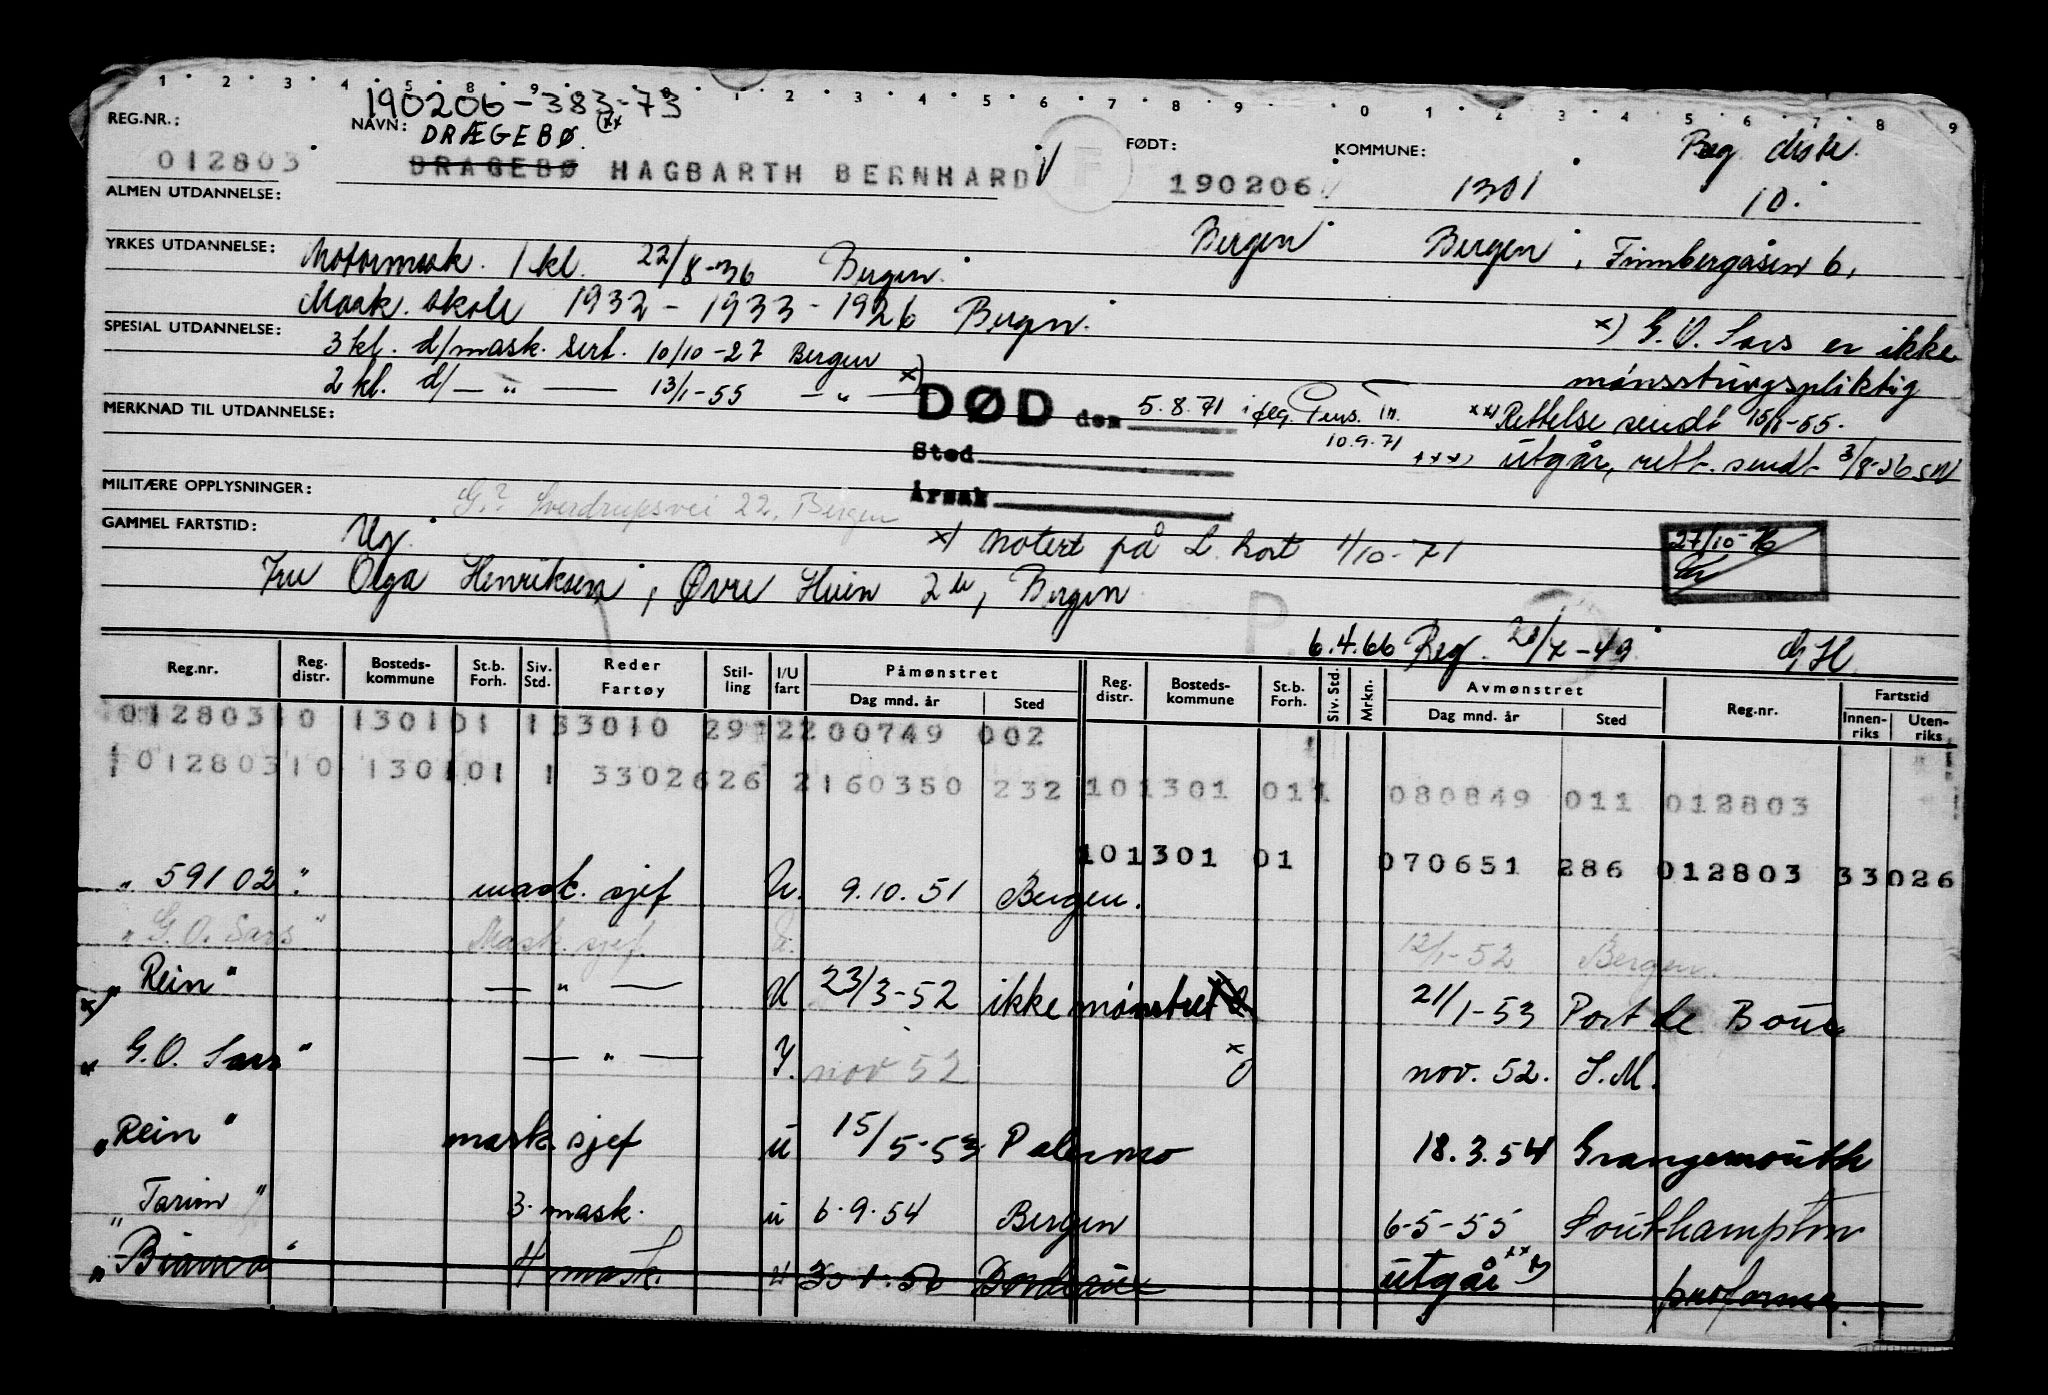 1 2 3 4 5 8 9 0 1 2 3 4 5 6 7 8 9 0 1 2 3 4 5 6 7 8 9
190206-383-73
REG.NR.: NAVN: DRÆGEBØ. xx) FØDT: KOMMUNE: Reg. distr.
012803 DRAGEBØ HAGBARTH BERNHARD F 190206 1301 10.
ALMEN UTDANNELSE:
Bergen Bergen, Finnbergåsen 6,
YRKES UTDANNELSE: Motormask. 1 kl. 22/8-36 Bergen.
Mask. skole 1932 - 1933 - 1926 Bergen.
SPESIAL UTDANNELSE: 3 kl. d/mask. sert. 10/10-27 Bergen
x) G.O. Sars er ikke
mønsstringspliktig
2 kl. d/ — " — 13/1-55 — " — x)
MERKNAD TIL UTDANNELSE:
DØD den 5.8.71 iflg. Pens. Tr.
10.9.71
xx) Rettelse sendt 15/1-55.
Sted
xxx) utgår, rett. sendt 3/8-56 SN
MILITÆRE OPPLYSNINGER:
Årsak
G.? Sverdrupsvei 22, Bergen
GAMMEL FARTSTID: Ug.
x) Notert på L. kort 1/10-71
27/10-76
Fru Olga Henriksen, Øvre Hvien 2 b, Bergen
P.
6.4.66 Reg. 20/7-49 GH
Reg.nr. Reg. distr. Bosteds-kommune St.b. Forh. Siv. Std. Reder Fartøy Stil-ling I/U fart Påmønstret Dag mnd. år Sted Reg. distr. Bosteds-kommune St.b. Forh. Siv. Std. Mrkn. Avmønstret Dag mnd. år Sted Reg.nr. Fartstid Innen-riks Uten-riks
012803 10 1301 01 1 33010 29 2 200749 002
012803 10 1301 01 1 33026 26 2 160350 232 10 1301 01 1 080849 011 012803
10 1301 01 070651 286 012803 33026
" 59102 " mask. sjef U. 9.10.51 Bergen.
" G.O. Sars " Mask. sjef. U. 12/1-52 Bergen.
" Rein " — " — U 23/3-52 ikke mønstret 21/1-53 Port de Bouc
x " G.O. Sars " — " — I. nov 52 x nov. 52. S.M.
" Rein " mask. sjef u 15/5-53 Palermo 18.3.54 Grangemouth
" Tarim " 3. mask. u 6.9.54 Bergen 6-5-55 Southampton
" Bianca " 4 mask. u 30.1.56 Bordeaux utgår xxx) proforma.